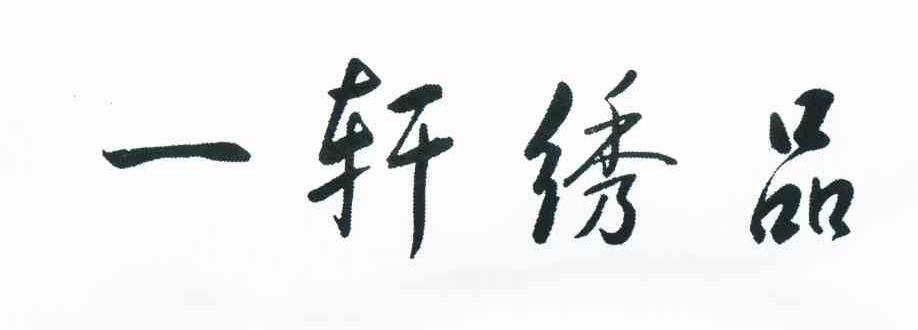 一轩绣品